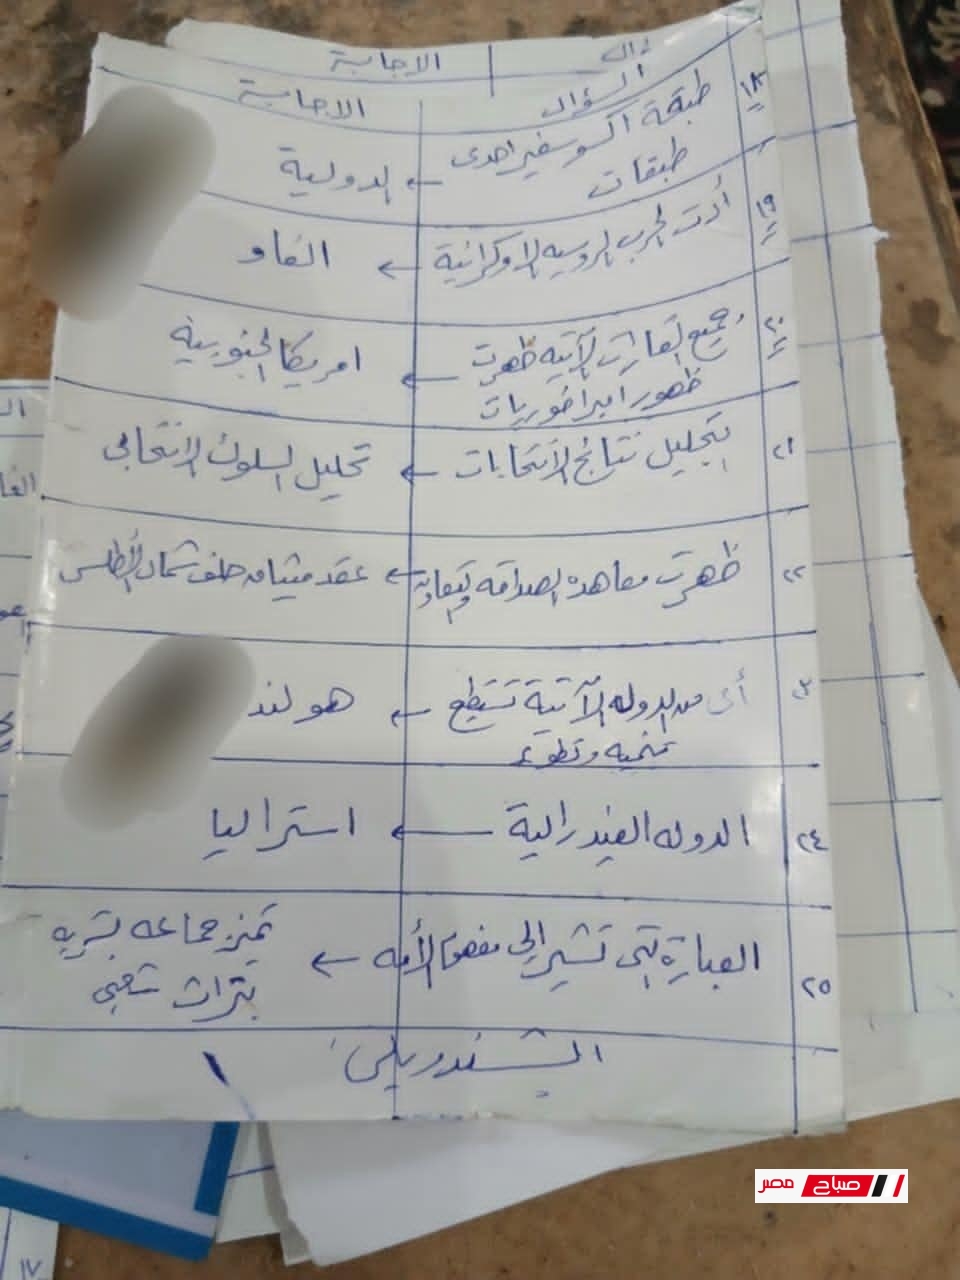 الاجابة
السؤال
الاجابة
١٨
طبقة اكسوسفير احدى
طبقات
← الدولية
١٩
أدت الحرب الروسيه الاوكرانية
← الفاو
٢٠
جميع القارات الآتيه ظهرت
ظهور امبراطوريات
← امريكا الجنوبية
٢١
تحليل نتائج الانتخابات
← تحليل السلوك الانتخابى
٢٢
ظهرت معاهده الصداقه والتعاون
← عقد ميثاق حلف شمال الأطلسى
أى من الدوله الآتية تستطيع
تنميه وتطوير
← هولند
٢٤
الدوله الفيدرالية
← استراليا
٢٥
العبارة التى تشير الى مفهوم الأمه
← تميز جماعه بشريه
بتراث شعبى
١٧
صباح مصر